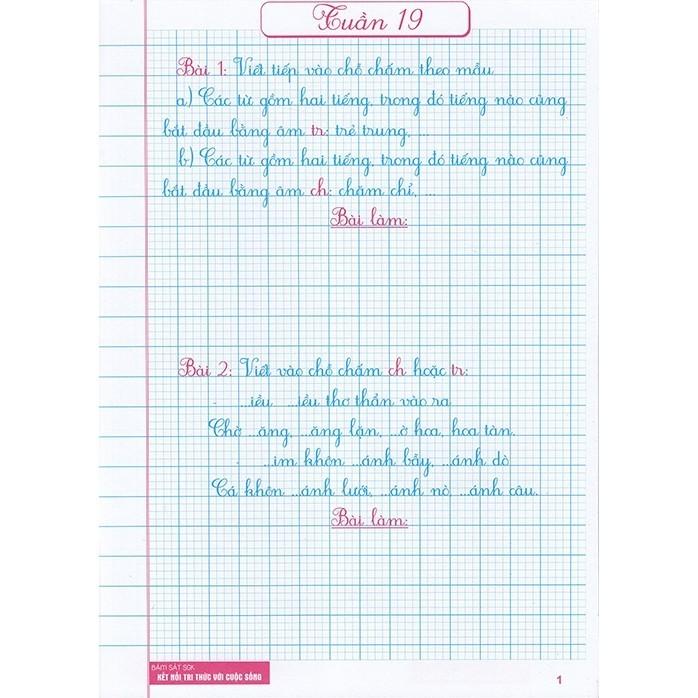 Tuần 19
Bài 1: Viết tiếp vào chỗ chấm theo mẫu
a) Các từ gồm hai tiếng, trong đó tiếng nào cũng
bắt đầu bằng âm tr: trẻ trung, ...
b) Các từ gồm hai tiếng, trong đó tiếng nào cũng
bắt đầu bằng âm ch: chăm chỉ, ...
Bài làm:
Bài 2: Viết vào chỗ chấm ch hoặc tr:
- ...iều ...iều thơ thẩn vào ra
Chờ ...ăng, ...ăng lặn, ...ờ hoa, hoa tàn.
- ...im khôn ...ánh bẫy, ...ánh dò
Cá khôn ...ánh lưới, ...ánh nò, ...ánh câu.
Bài làm:
BÁM SÁT SGK
KẾT NỐI TRI THỨC VỚI CUỘC SỐNG
1